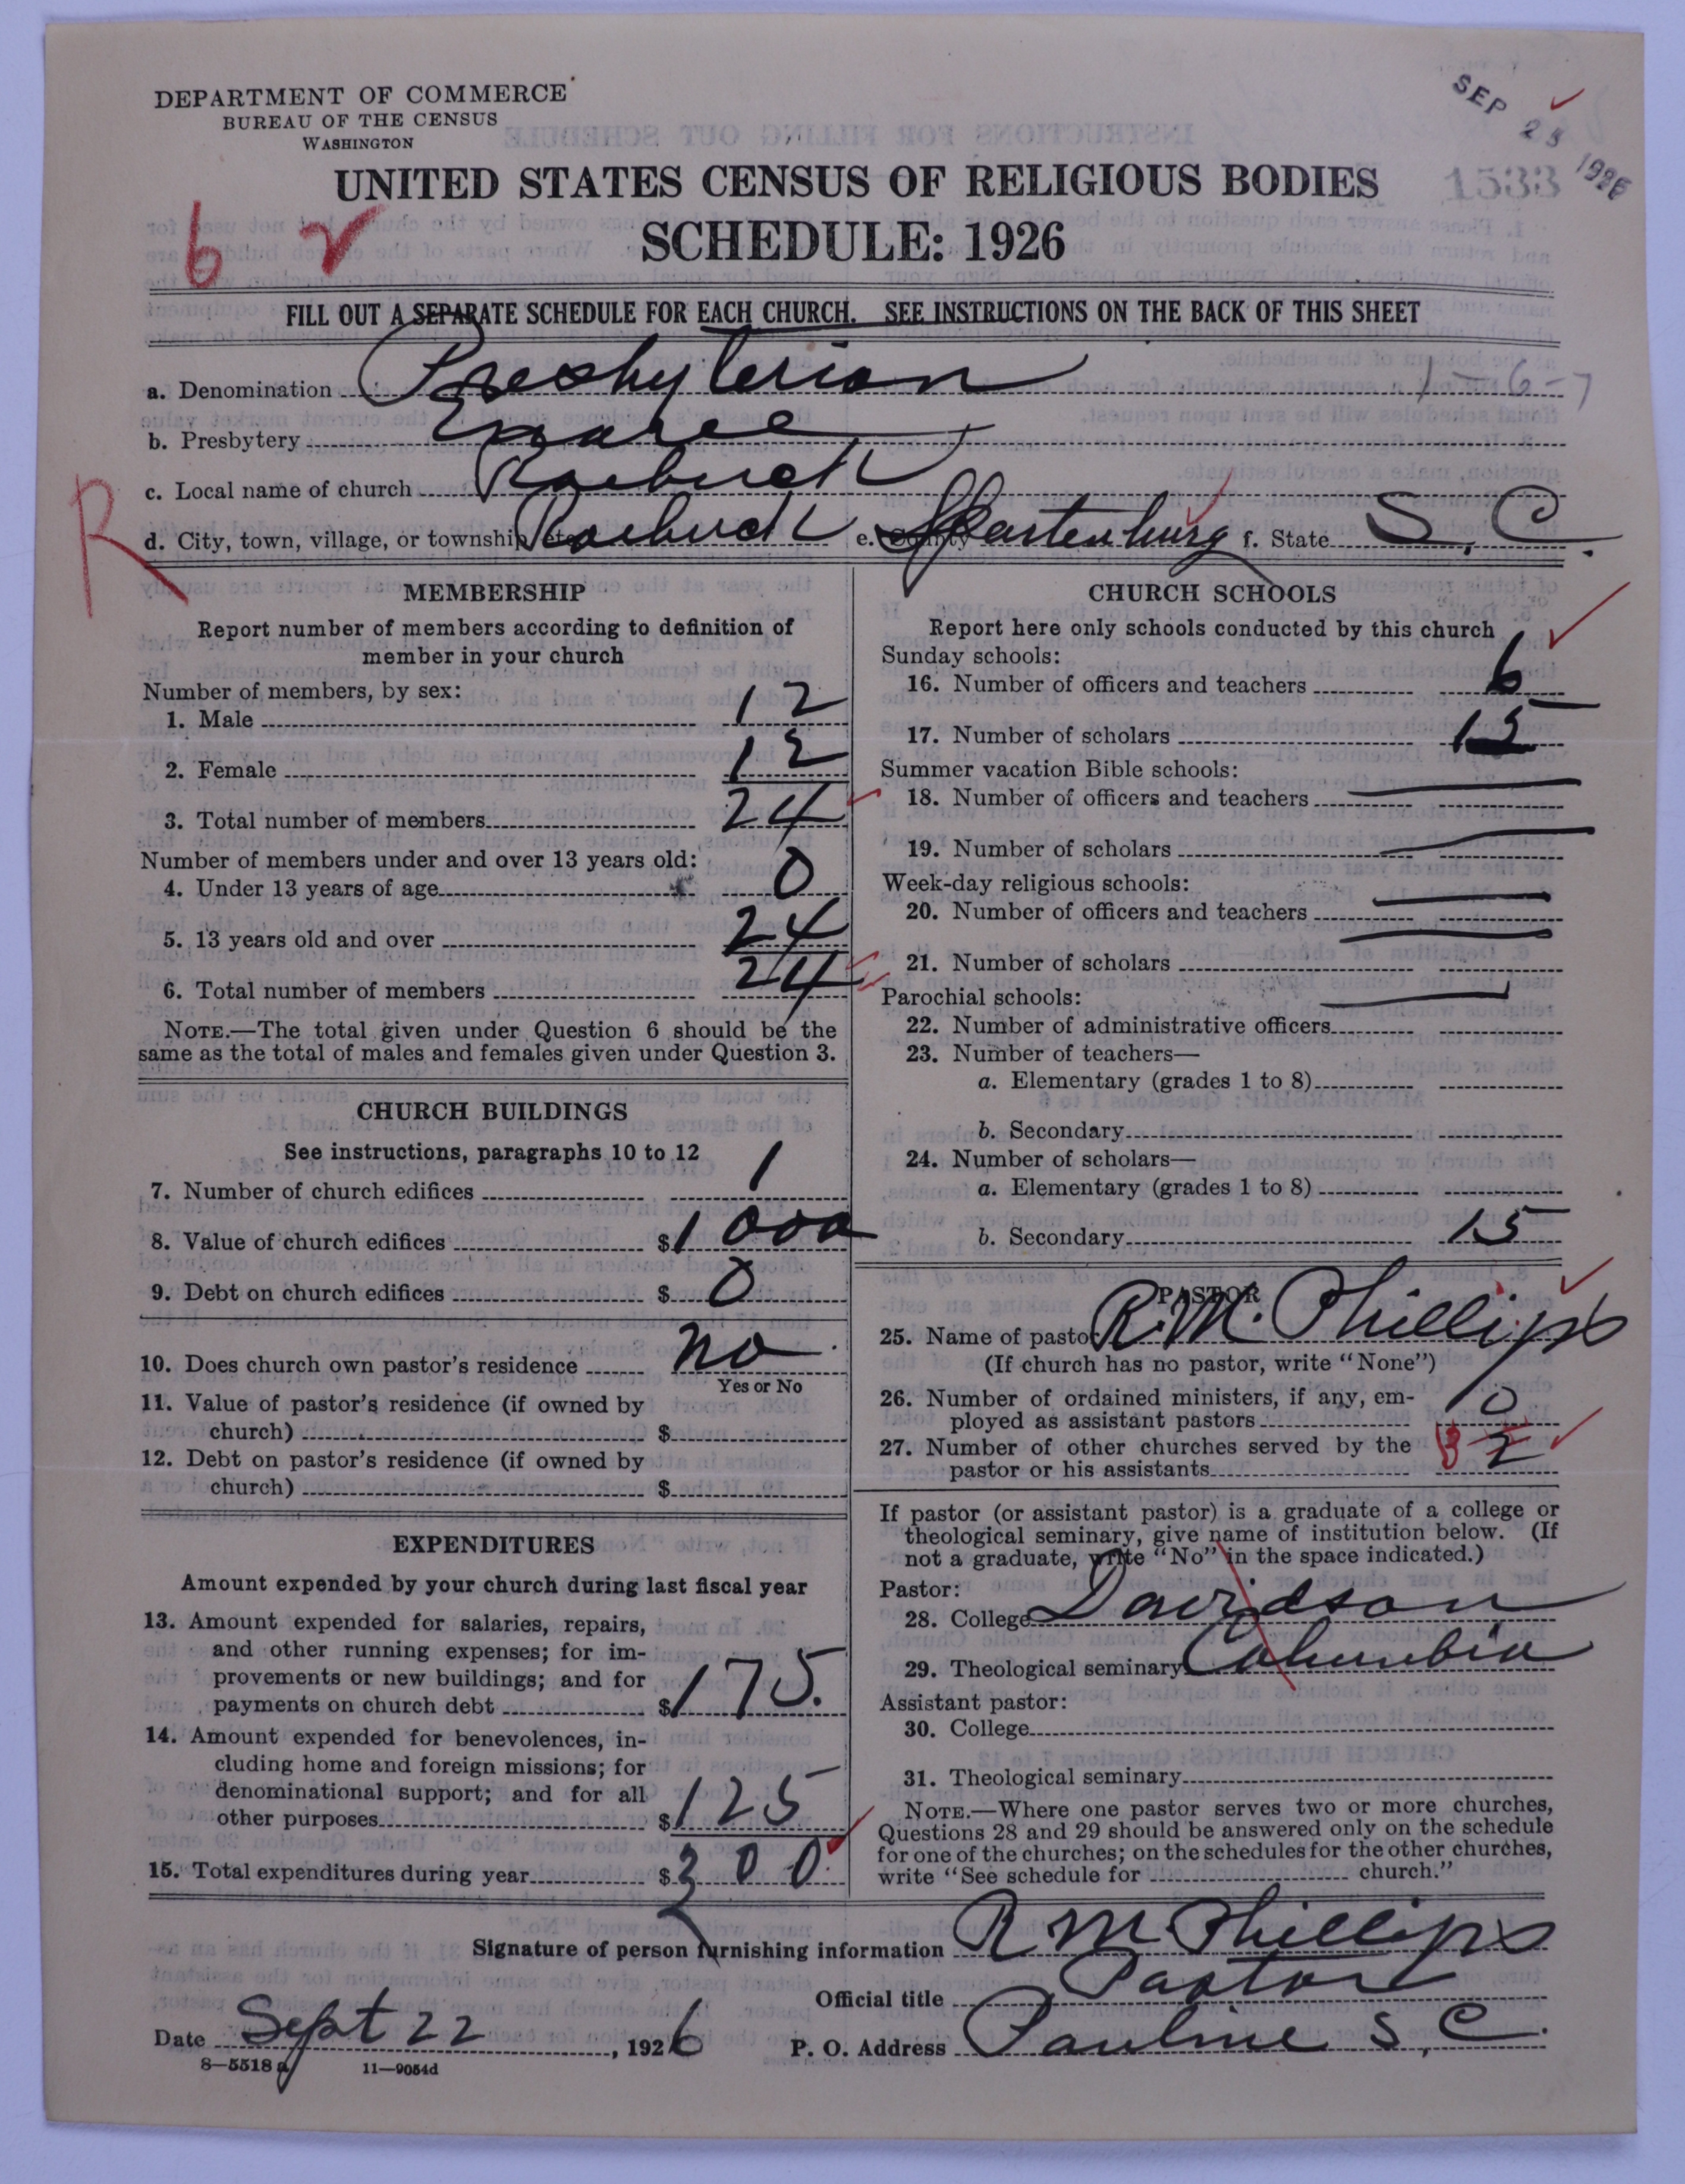 DEPARTMENT OF COMMERCE
BUREAU OF THE CENSUS
WASHINGTON
SEP 25 1926
UNITED STATES CENSUS OF RELIGIOUS BODIES
SCHEDULE: 1926
6
FILL OUT A SEPARATE SCHEDULE FOR EACH CHURCH. SEE INSTRUCTIONS ON THE BACK OF THIS SHEET
1-6-7
a. Denomination Presbyterian
b. Presbytery Enoree
c. Local name of church Roebuck
R
d. City, town, village, or township, etc. Roebuck e. County Spartenburg f. State S. C.
MEMBERSHIP
Report number of members according to definition of
member in your church
Number of members, by sex:
1. Male 12
2. Female 12
3. Total number of members 24
Number of members under and over 13 years old:
4. Under 13 years of age 0
5. 13 years old and over 24
6. Total number of members 24
NOTE.—The total given under Question 6 should be the
same as the total of males and females given under Question 3.
CHURCH BUILDINGS
See instructions, paragraphs 10 to 12
7. Number of church edifices 1
8. Value of church edifices $1000
9. Debt on church edifices $ 0
10. Does church own pastor's residence no
Yes or No
11. Value of pastor's residence (if owned by
church) $
12. Debt on pastor's residence (if owned by
church) $
EXPENDITURES
Amount expended by your church during last fiscal year
13. Amount expended for salaries, repairs,
and other running expenses; for im-
provements or new buildings; and for
payments on church debt $175.
14. Amount expended for benevolences, in-
cluding home and foreign missions; for
denominational support; and for all
other purposes $125
15. Total expenditures during year $300
CHURCH SCHOOLS
Report here only schools conducted by this church
Sunday schools:
16. Number of officers and teachers 6
17. Number of scholars 15
Summer vacation Bible schools:
18. Number of officers and teachers
19. Number of scholars
Week-day religious schools:
20. Number of officers and teachers
21. Number of scholars
Parochial schools:
22. Number of administrative officers
23. Number of teachers—
a. Elementary (grades 1 to 8)
b. Secondary
24. Number of scholars—
a. Elementary (grades 1 to 8)
b. Secondary 15
PASTOR
25. Name of pastor R. M. Phillips
(If church has no pastor, write "None")
26. Number of ordained ministers, if any, em-
ployed as assistant pastors 0
27. Number of other churches served by the
pastor or his assistants 3 2
If pastor (or assistant pastor) is a graduate of a college or
theological seminary, give name of institution below. (If
not a graduate, write "No" in the space indicated.)
Pastor:
28. College Davidson
29. Theological seminary Columbia
Assistant pastor:
30. College
31. Theological seminary
NOTE.—Where one pastor serves two or more churches,
Questions 28 and 29 should be answered only on the schedule
for one of the churches; on the schedules for the other churches,
write "See schedule for church."
Signature of person furnishing information R M Phillips
Official title Pastor
Date Sept 22, 1926 P. O. Address Pauline S. C.
8—5518 a 11—9054d